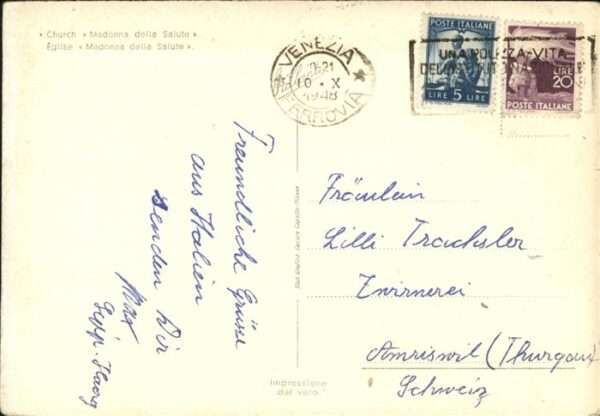 « Church « Madonna della Salute ».
Église « Madonna della Salute ».
VENEZIA
21
10 · X
1948
FERROVIA
UNA POLIZZA VITA
POSTE ITALIANE
LIRE 5 LIRE
LIRE
20
POSTE ITALIANE
Freundliche Grüsse
aus Italien
senden Dir
Max
Fräulein
Lilli Trachsler
Zwirnerei
Amriswil (Thurgau)
Schweiz
Impressione
dal vero